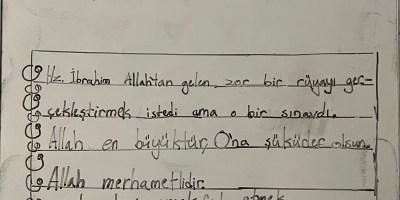 Hz. İbrahim Allah'tan gelen zor bir rüyayı ger=
çekleştirmek istedi ama o bir sınavdı.
Allah en büyüktür, O'na şükürler olsun.
Allah merhametlidir.